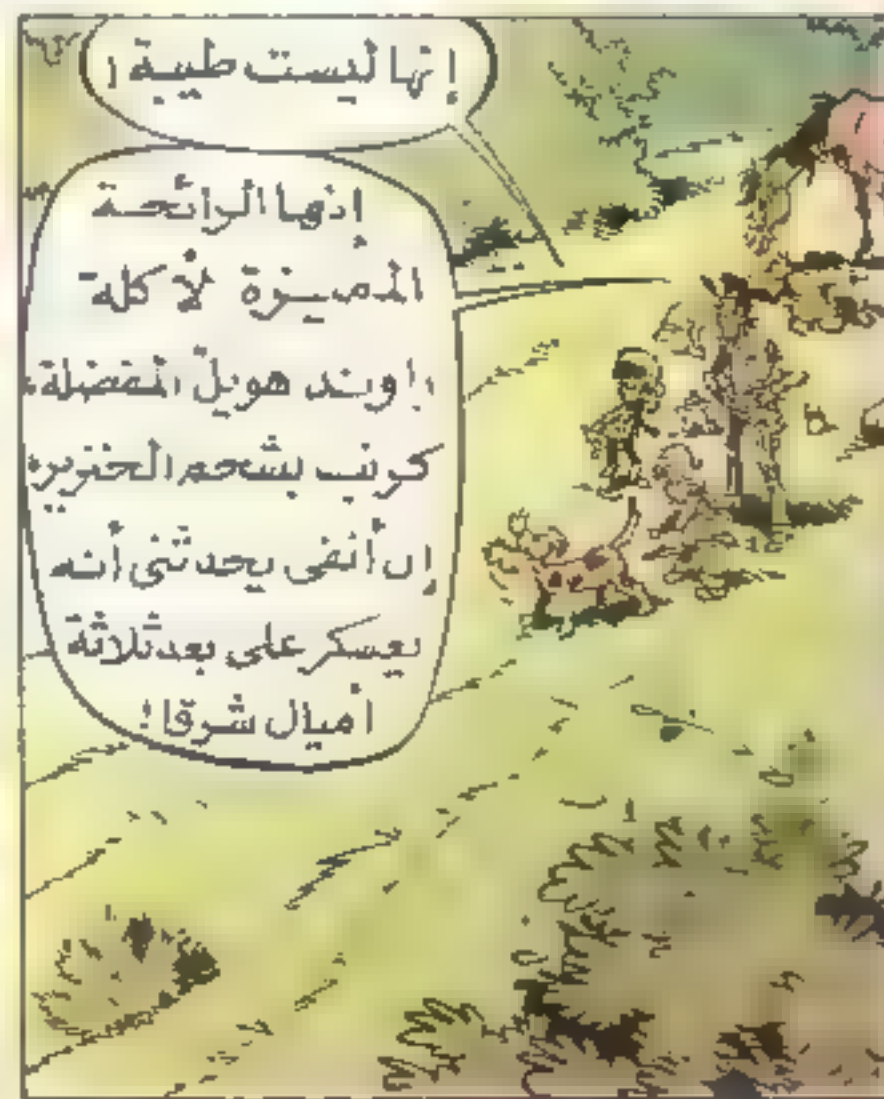 إنها ليست طيبة !
إنها الرائحة
المميزة لأكلة
راوند هويل المفضلة،
كرنب بشحم الخنزير،
إن أنفى يحدثنى أنه
يعسكر على بعد ثلاثة
أميال شرقا !